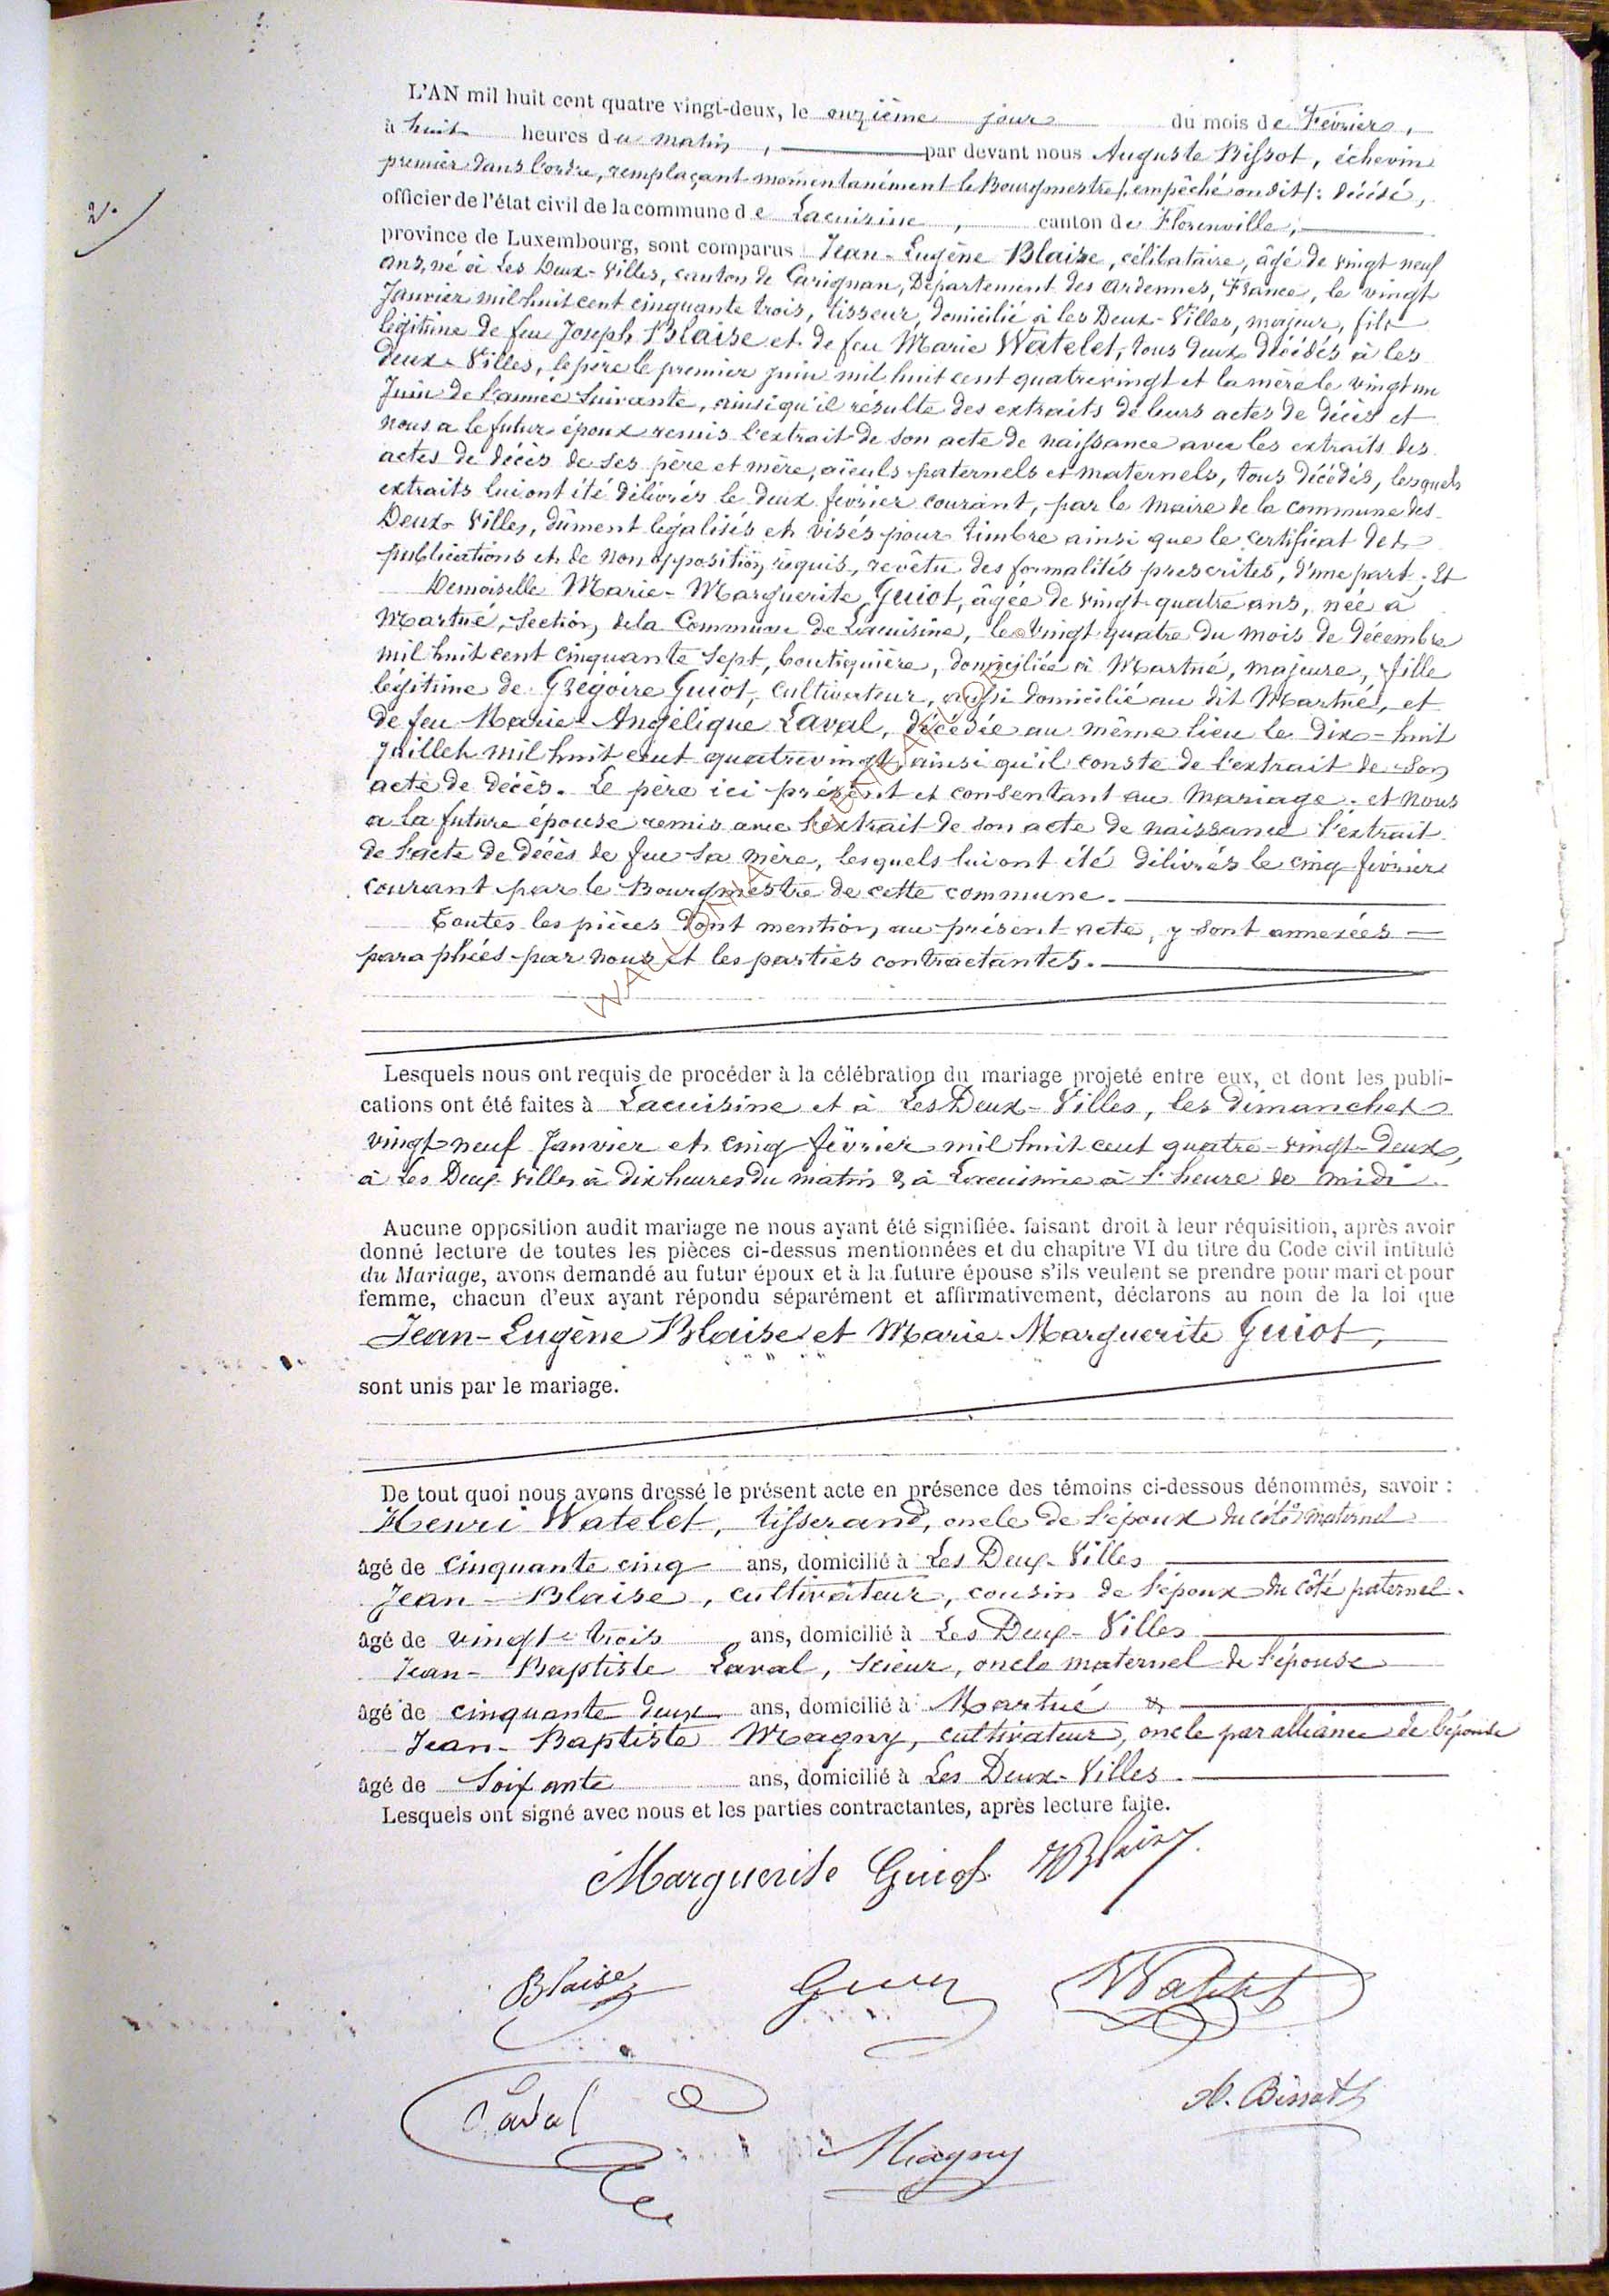 2.
L'AN mil huit cent quatre vingt-deux, le onzième jour du mois de Février,
à huit heures du matin, par devant nous Auguste Bissot, échevin
premier dans l'ordre, remplaçant momentanément le Bourgmestre /: empêché on dit :/ décédé,
officier de l'état civil de la commune de Lacuisine, canton de Florenville,
province de Luxembourg, sont comparus Jean-Eugène Blaise, célibataire, âgé de vingt neuf
ans, né à Les Deux-Villes, canton de Carignan, Département des Ardennes, France, le vingt
Janvier mil huit cent cinquante trois, tisseur, domicilié à les Deux-Villes, majeur, fils
légitime de feu Joseph Blaise et de feu Marie Watelet, tous deux décédés à les
deux-Villes, le père le premier juin mil huit cent quatrevingt et la mère le vingt un
Juin de l'année suivante, ainsi qu'il résulte des extraits de leurs actes de décès et
nous a le futur époux remis l'extrait de son acte de naissance avec les extraits des
actes de décès de ses père et mère, aïeuls paternels et maternels, tous décédés, lesquels
extraits lui ont été délivrés le deux février courant, par le Maire de la commune des
Deux-Villes, dûment légalisés et visés pour timbre ainsi que le certificat de
publications et de non opposition requis, revêtu des formalités prescrites, d'une part; Et
Demoiselle Marie-Marguerite Guiot, âgée de vingt-quatre ans, née à
Martué, section de la Commune de Lacuisine, le vingt quatre du mois de décembre
mil huit cent cinquante sept, boutiquière, domiciliée à Martué, majeure, fille
légitime de Grégoire Guiot, cultivateur, aussi domicilié au dit Martué, et
de feu Marie-Angélique Laval, décédée au même lieu le dix-huit
Juillet mil huit cent quatrevingt, ainsi qu'il conste de l'extrait de son
acte de décès. Le père ici présent et consentant au mariage. et nous
a la future épouse remis avec l'extrait de son acte de naissance l'extrait
de l'acte de décès de feu sa mère, lesquels lui ont été délivrés le cinq février
courant par le Bourgmestre de cette commune.
Toutes les pièces dont mention au présent acte, y sont annexées
paraphées par nous et les parties contractantes.
Lesquels nous ont requis de procéder à la célébration du mariage projeté entre eux, et dont les publi-
cations ont été faites à Lacuisine et à Les Deux-Villes, les dimanches
vingt neuf Janvier et cinq février mil huit cent quatre-vingt-deux,
à Les Deux-Villes à dix heures du matin & à Lacuisine à l'heure de midi.
Aucune opposition audit mariage ne nous ayant été signifiée. faisant droit à leur réquisition, après avoir
donné lecture de toutes les pièces ci-dessus mentionnées et du chapitre VI du titre du Code civil intitulé
du Mariage, avons demandé au futur époux et à la future épouse s'ils veulent se prendre pour mari et pour
femme, chacun d'eux ayant répondu séparément et affirmativement, déclarons au nom de la loi que
Jean-Eugène Blaise et Marie-Marguerite Guiot,
sont unis par le mariage.
De tout quoi nous avons dressé le présent acte en présence des témoins ci-dessous dénommés, savoir :
Henri Watelet, tisserand, oncle de l'époux du côté maternel
âgé de cinquante cinq ans, domicilié à Les Deux-Villes
Jean-Blaise, cultivateur, cousin de l'époux du côté paternel.
âgé de vingt-trois ans, domicilié à Les Deux-Villes
Jean-Baptiste Laval, scieur, oncle maternel de l'épouse
âgé de cinquante deux ans, domicilié à Martué &
Jean-Baptiste Magny, cultivateur, oncle par alliance de l'épouse
âgé de Soixante ans, domicilié à Les Deux-Villes.
Lesquels ont signé avec nous et les parties contractantes, après lecture faite.
Marguerite Guiot Blaise
Blaise Guiot Watelet
Laval Magny A. Bissot